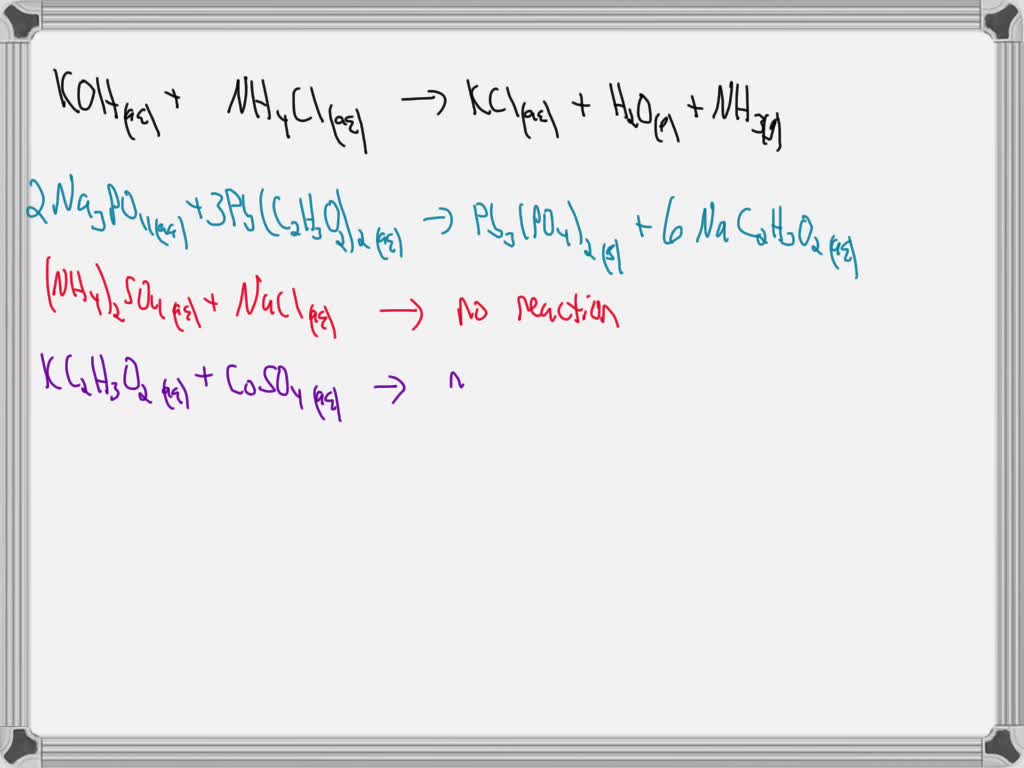 KOH(aq) + NH₄Cl(aq) → KCl(aq) + H₂O(l) + NH₃(g)
2Na₃PO₄(aq) + 3Pb(C₂H₃O₂)₂(aq) → Pb₃(PO₄)₂(s) + 6NaC₂H₃O₂(aq)
(NH₄)₂SO₄(aq) + NaCl(aq) → no reaction
KC₂H₃O₂(aq) + CoSO₄(aq) → n